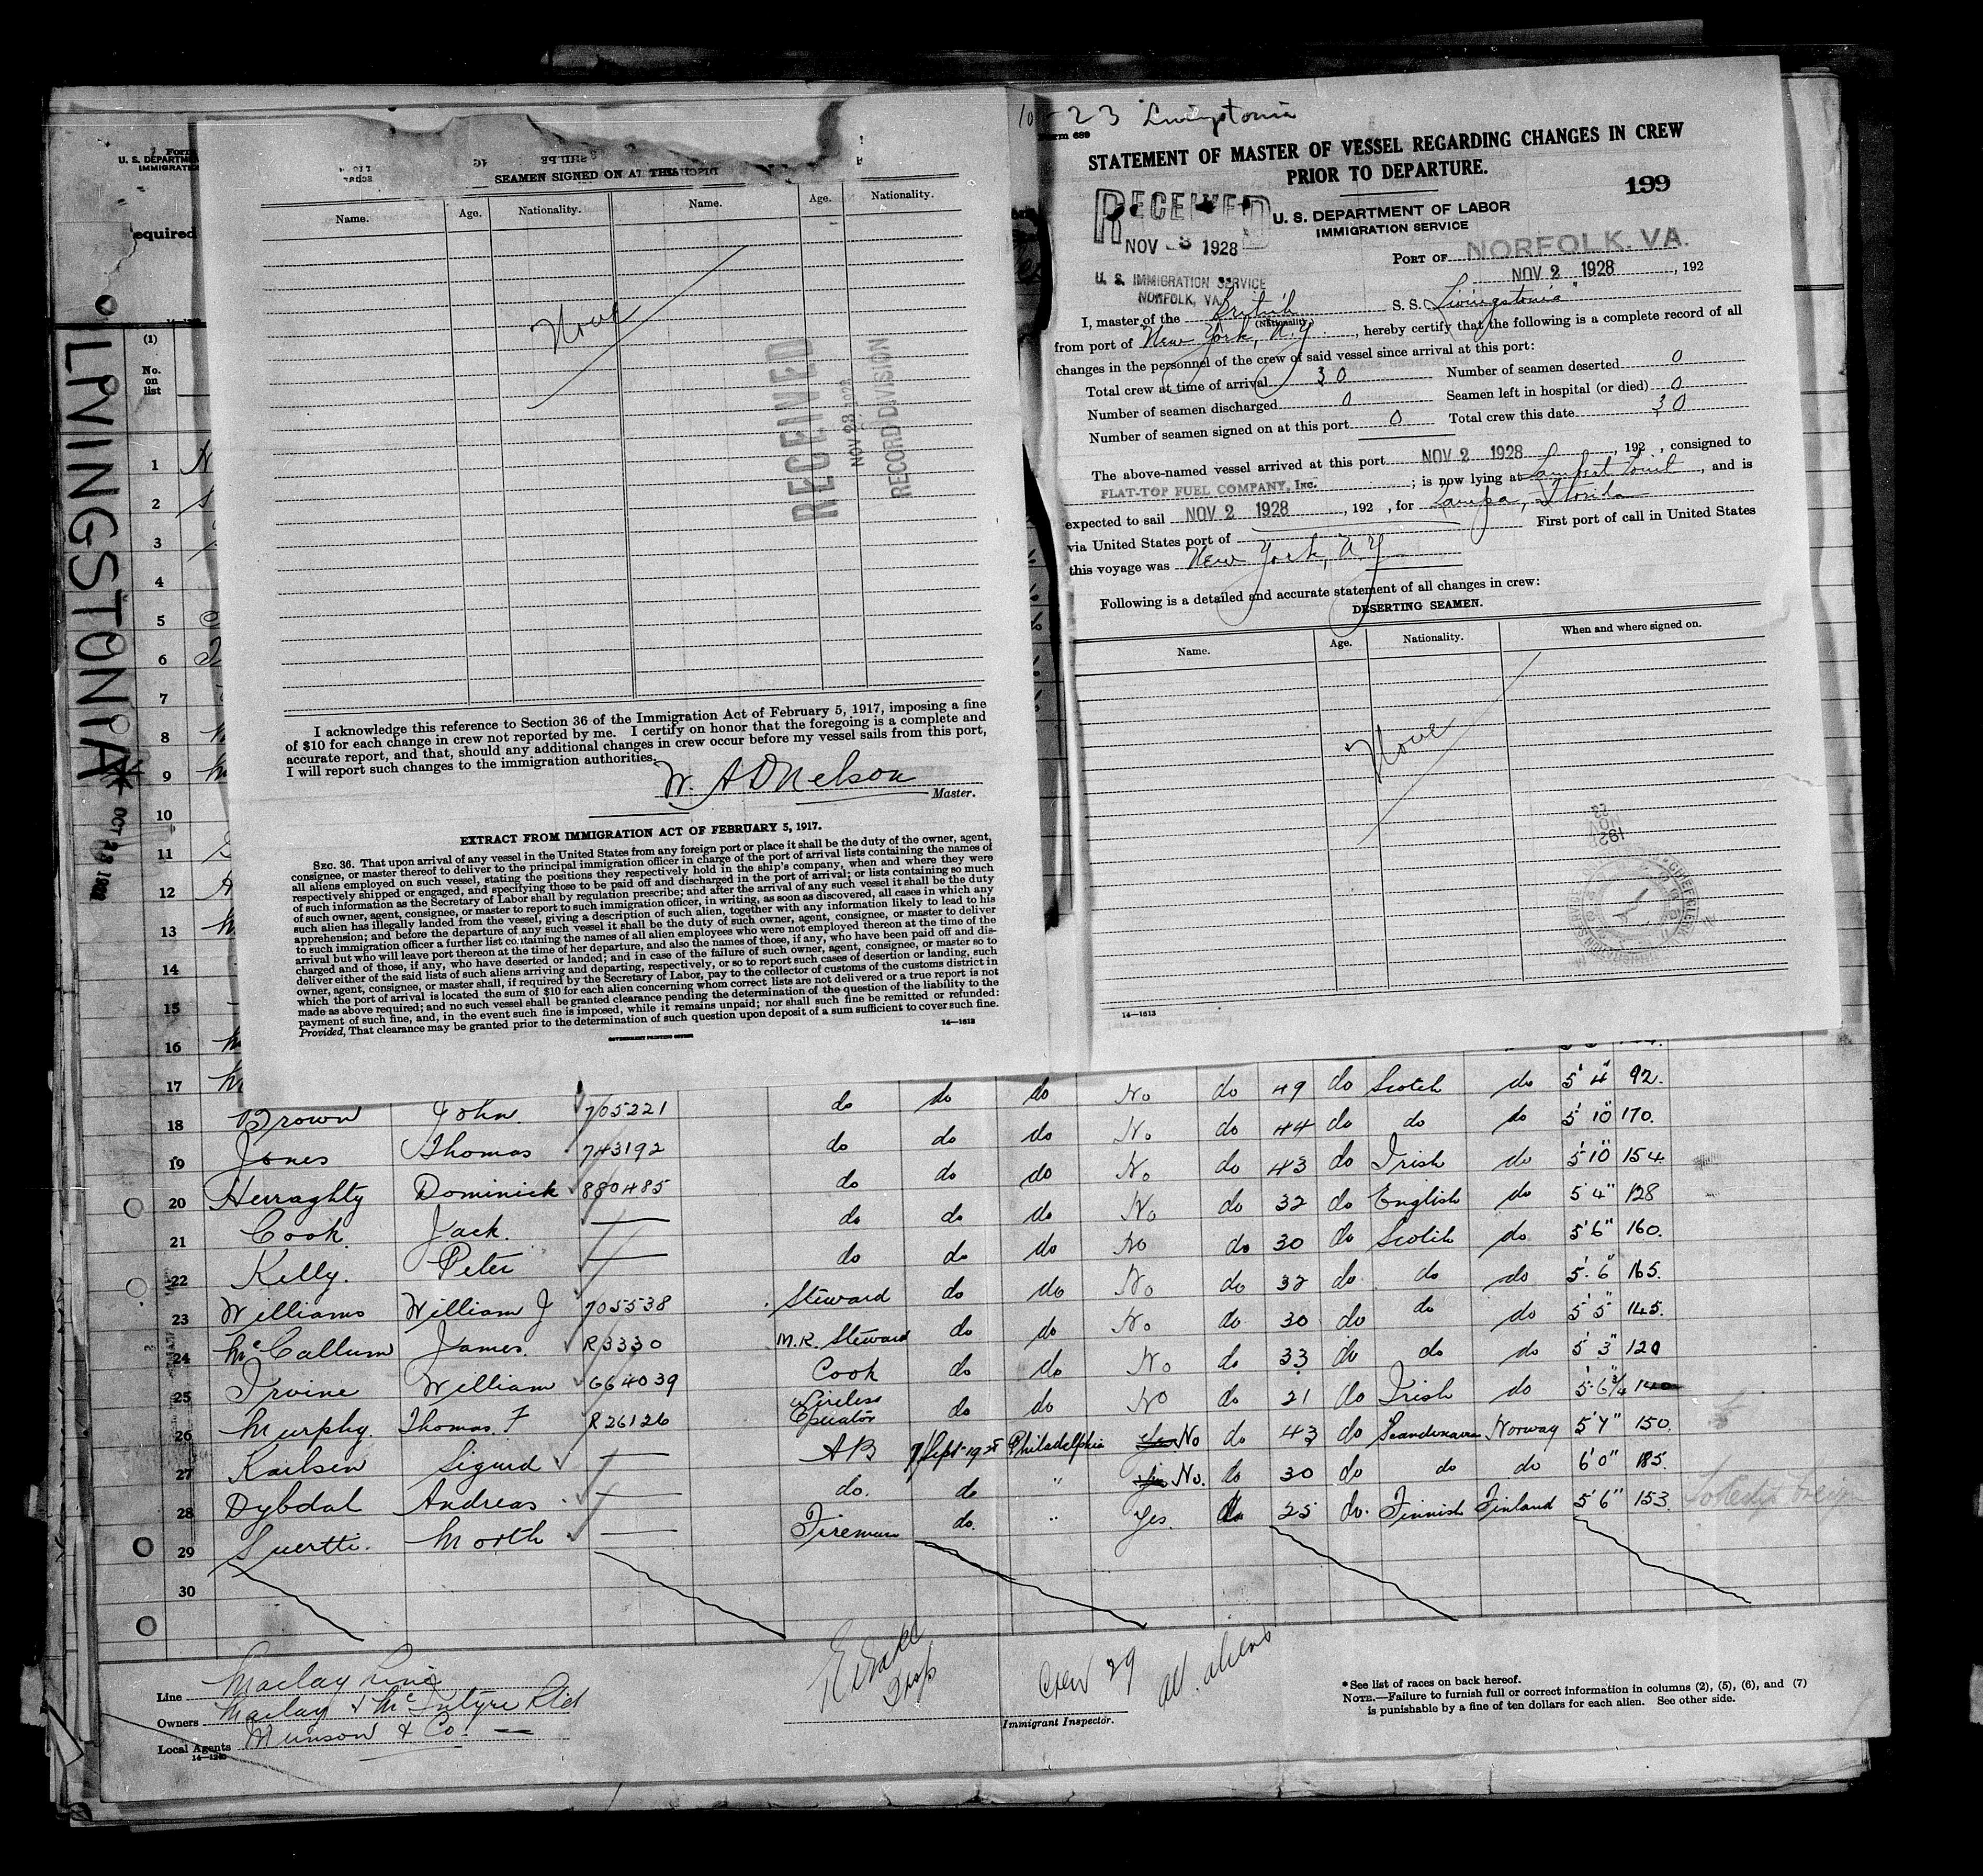 LIVINGSTONIA
OCT 23 1928
Form
U. S. DEPARTM
IMMIGRATIO
equired
(1)
No.
on
list
SEAMEN SIGNED ON AT THIS
Name. Age. Nationality. Name. Age. Nationality.
None
RECEIVED
NOV 23 1928
RECORD DIVISION
I acknowledge this reference to Section 36 of the Immigration Act of February 5, 1917, imposing a fine
of $10 for each change in crew not reported by me. I certify on honor that the foregoing is a complete and
accurate report, and that, should any additional changes in crew occur before my vessel sails from this port,
I will report such changes to the immigration authorities.
W. A D Nelson
Master.
EXTRACT FROM IMMIGRATION ACT OF FEBRUARY 5, 1917.
SEC. 36. That upon arrival of any vessel in the United States from any foreign port or place it shall be the duty of the owner, agent,
consignee, or master thereof to deliver to the principal immigration officer in charge of the port of arrival lists containing the names of
all aliens employed on such vessel, stating the positions they respectively hold in the ship's company, when and where they were
respectively shipped or engaged, and specifying those to be paid off and discharged in the port of arrival; or lists containing so much
of such information as the Secretary of Labor shall by regulation prescribe; and after the arrival of any such vessel it shall be the duty
of such owner, agent, consignee, or master to report to such immigration officer, in writing, as soon as discovered, all cases in which any
such alien has illegally landed from the vessel, giving a description of such alien, together with any information likely to lead to his
apprehension; and before the departure of any such vessel it shall be the duty of such owner, agent, consignee, or master to deliver
to such immigration officer a further list containing the names of all alien employees who were not employed thereon at the time of the
arrival but who will leave port thereon at the time of her departure, and also the names of those, if any, who have been paid off and dis-
charged and of those, if any, who have deserted or landed; and in case of the failure of such owner, agent, consignee, or master so to
deliver either of the said lists of such aliens arriving and departing, respectively, or so to report such cases of desertion or landing, such
owner, agent, consignee, or master shall, if required by the Secretary of Labor, pay to the collector of customs of the customs district in
which the port of arrival is located the sum of $10 for each alien concerning whom correct lists are not delivered or a true report is not
made as above required; and no such vessel shall be granted clearance pending the determination of the question of the liability to the
payment of such fine, and, in the event such fine is imposed, while it remains unpaid; nor shall such fine be remitted or refunded:
Provided, That clearance may be granted prior to the determination of such question upon deposit of a sum sufficient to cover such fine.
14—1613
GOVERNMENT PRINTING OFFICE
10-23 Livingstonia
Form 689
STATEMENT OF MASTER OF VESSEL REGARDING CHANGES IN CREW
PRIOR TO DEPARTURE.
199
RECEIVED
NOV -3 1928
U. S. IMMIGRATION SERVICE
NORFOLK, VA.
U. S. DEPARTMENT OF LABOR
IMMIGRATION SERVICE
PORT OF NORFOLK, VA.
NOV 2 1928, 192
I, master of the British S. S. "Livingstonia"
(Nationality)
from port of New York, N.Y., hereby certify that the following is a complete record of all
changes in the personnel of the crew of said vessel since arrival at this port:
Total crew at time of arrival 30 Number of seamen deserted 0
Number of seamen discharged 0 Seamen left in hospital (or died) 0
Number of seamen signed on at this port 0 Total crew this date 30
The above-named vessel arrived at this port NOV 2 1928, 192 , consigned to
FLAT-TOP FUEL COMPANY, Inc. ; is now lying at Lambert Point, and is
expected to sail NOV 2 1928, 192 , for Tampa, Florida
via United States port of First port of call in United States
this voyage was New York, N Y
Following is a detailed and accurate statement of all changes in crew:
DESERTING SEAMEN.
Name. Age. Nationality. When and where signed on.
None
14—1613
1
2
3
4
5
6
7
8
9
10
11
12
13
14
15
16
17 do do do No do 49 do Scotch do 5'4" 92.
18 Brown John 705221 do do do No do 44 do do do 5'10" 170.
19 Jones Thomas 743192 do do do No do 43 do Irish do 5'10" 154
20 Herraghty Dominick 880485 do do do No do 32 do English do 5'4" 128
21 Cook Jack. — do do do No do 30 do Scotch do 5'6" 160.
22 Kelly. Peter — Steward do do No do 32 do do do 5'6" 165.
23 Williams William J 705538 M.R. Steward do do No do 30 do do do 5'5" 145.
24 McCallum James. R3330 Cook do do No do 33 do do do 5'3" 120
25 Irvine William 664039 Wireless Operator do do No do 21 do Irish do 5'6¾ 140
26 Murphy. Thomas. F R26126 AB 7/Sept-1928 Philadelphia Yes No do 43 do Scandinavian Norway 5'7" 150.
27 Karlsen Sigurd — do. do " Yes No. do 30 do do do 6'0" 185.
28 Dybdal Andreas — Fireman do. " Yes. do 25 do. Finnish Finland 5'6" 153.
29 Suertti. Morth —
30
Line Maclay Line
Owners Maclay & McIntyre Ltd
Local Agents Munson & Co. —
14—1240
Insp
Crew 29
all aliens
Immigrant Inspector.
* See list of races on back hereof.
NOTE.—Failure to furnish full or correct information in columns (2), (5), (6), and (7)
is punishable by a fine of ten dollars for each alien. See other side.